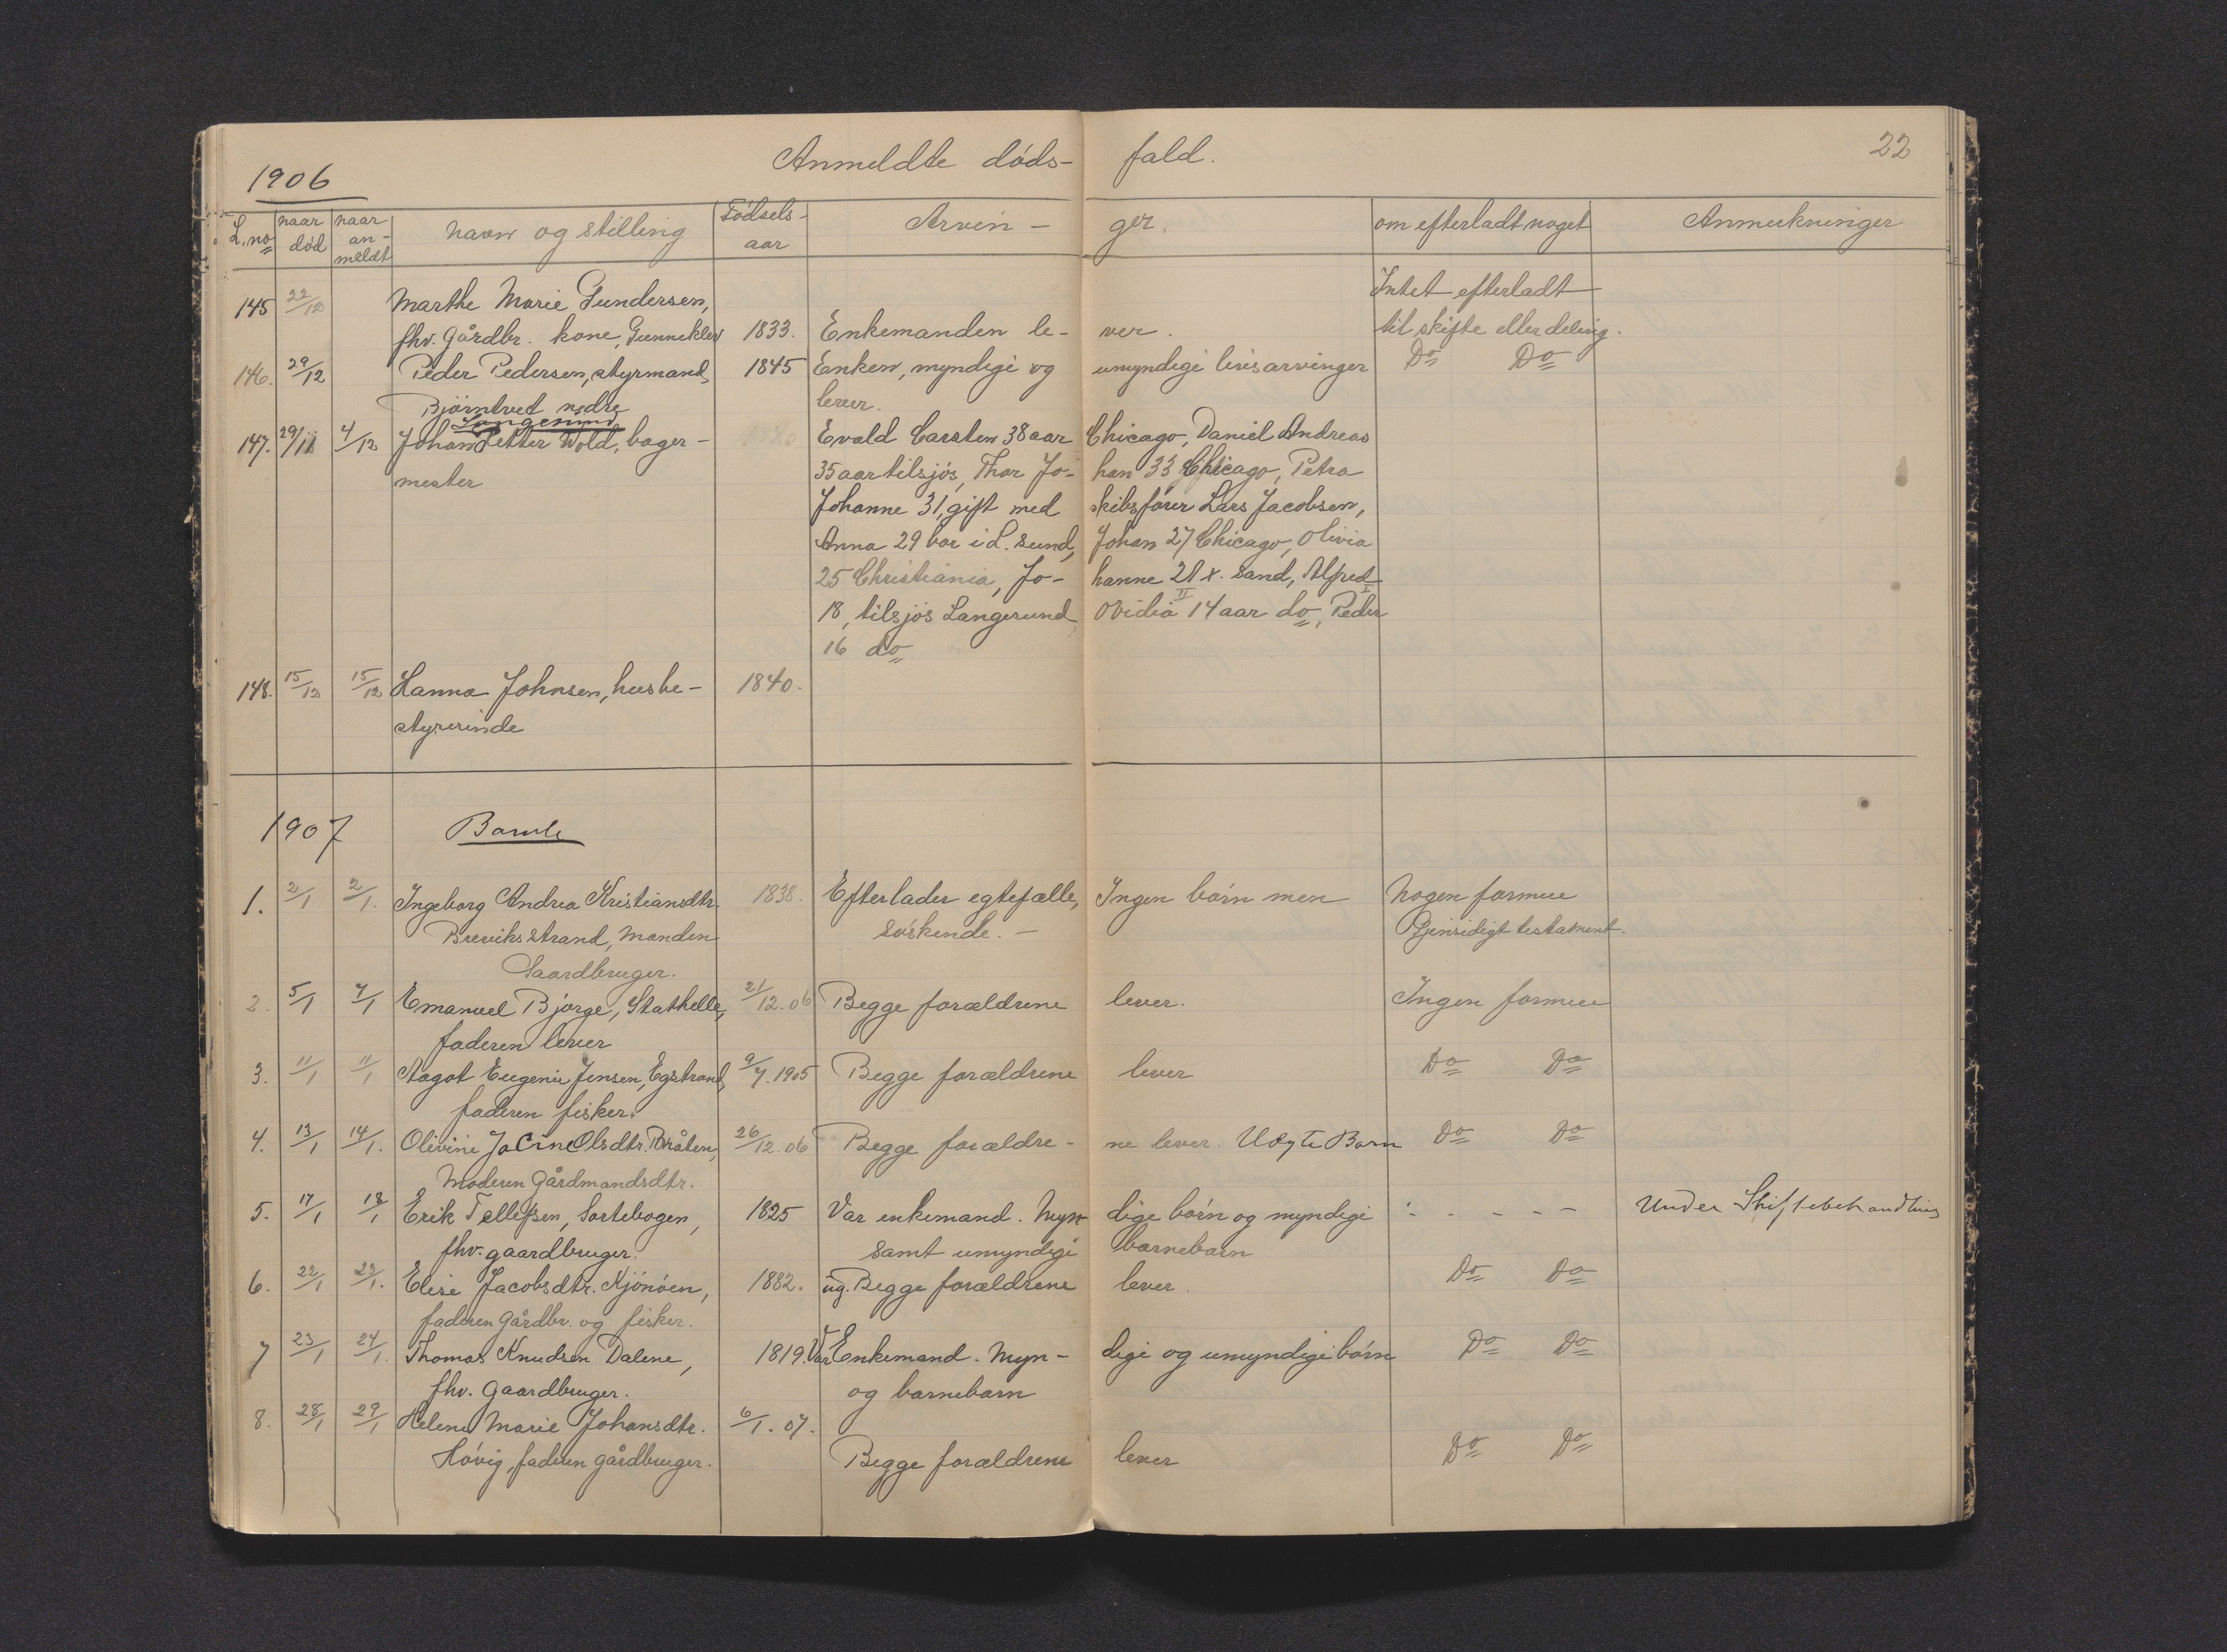 22
Anmeldte døds- fald.
1906
L.no naar død naar an- meldt navn og stilling Fødsels- aar Arvin- ger. om efterladt noget Anmerkninger
145 22/12 Marthe Marie Gundersen, Intet efterladt
fhv. Gårdbr. kone, Gunneklev 1833. Enkemanden le- ver. til skifte eller deling.
146. 29/12 Peder Pedersen, styrmand, 1845 Enken, myndige og umyndige livsarvinger Do Do
Bjørntvet nedre lever.
Langesund
147. 29/11 4/12 Johan Petter Wold, bager- Evald Carsten 38 aar Chicago, Daniel Andreas
mester 35 aar tilsjøs, Thor Jo- han 33 Chicago, Petra
Johanne 31, gift med skibsfører Lars Jacobsen,
Anna 29 bor i L. sund, Johan 27 Chicago, Olivia
25 Christiania, Jo- hanne 21 x. sand, Alfred I
18, tilsjøs Langesund, Ovidia II 14 aar do, Peder
16 do
148. 15/12 15/12 Hanna Johnsen, husbe- 1840.
styrerinde
1907 Bamle
1. 2/1 2/1. Ingeborg Andrea Kristiansdtr. 1838. Efterlader egtefælle, Ingen børn men Nogen formue
Breviksstrand, manden søskende. - Gjensidigt testament.
Gaardbruger.
2. 5/1 7/1 Emanuel Bjørge, Stathelle, 21/12.06 Begge forældrene lever. Ingen formue
faderen lever
3. 11/1 11/1 Aagot Eugenie Jensen, Egstrand, 9/7.1905 Begge forældrene lever Do Do
faderen fisker.
4. 13/1 14/1. Olivine Jocine Olsdtr. Bråten, 26/12.06 Begge forældre- ne lever. Uægte Barn Do Do
Moderen Gårdmandsdtr.
5. 17/1 18/1 Erik Tellefsen, Sortebogen, 1825 Var enkemand. Myn- dige børn og myndige - - - - - Under Skiftebehandling
fhv. gaardbruger. samt umyndige barnebarn
6. 22/1 23/1. Elise Jacobsdtr. Kjønøen, 1882. ug. Begge forældrene lever. Do Do
faderen Gårdbr. og fisker.
7 23/1 24/1. Thomas Knudsen Dalene, 1819. Var Enkemand. Myn- dige og umyndige børn Do Do
fhv. Gaardbruger. og barnebarn
8. 28/1 29/1 Helene Marie Johansdtr. 6/1.07.
Høvig, faderen gårdbruger. Begge forældrene lever Do Do